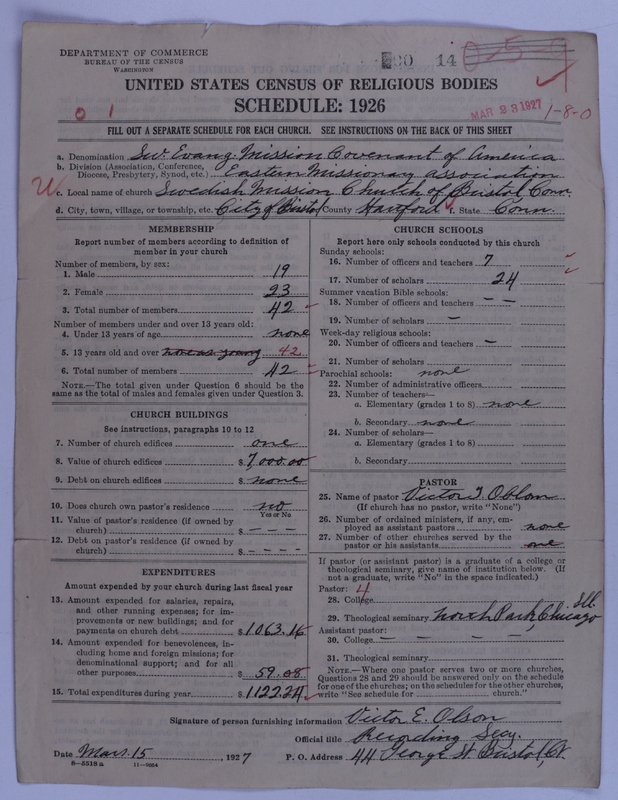 DEPARTMENT OF COMMERCE
BUREAU OF THE CENSUS
WASHINGTON
14
UNITED STATES CENSUS OF RELIGIOUS BODIES
SCHEDULE: 1926
MAR 23 1927
1-8-0
0 1
FILL OUT A SEPARATE SCHEDULE FOR EACH CHURCH. SEE INSTRUCTIONS ON THE BACK OF THIS SHEET
a. Denomination Sw. Evang. Mission Covenant of America
b. Division (Association, Conference, Diocese, Presbytery, Synod, etc.) Eastern Missionary Association
c. Local name of church Swedish Mission Church of Bristol Conn.
d. City, town, village, or township, etc. City of Bristol County Hartford f. State Conn.
MEMBERSHIP
Report number of members according to definition of
member in your church
Number of members, by sex:
1. Male 19
2. Female 23
3. Total number of members 42
Number of members under and over 13 years old:
4. Under 13 years of age none
5. 13 years old and over none as young 42
6. Total number of members 42
NOTE.—The total given under Question 6 should be
same as the total of males and females given under Question 3.
CHURCH BUILDINGS
See instructions, paragraphs 10 to 12
7. Number of church edifices one
8. Value of church edifices $7,000.00
9. Debt on church edifices $ none
10. Does church own pastor's residence no
Yes or No
11. Value of pastor's residence (if owned by
church) $ – – –
12. Debt on pastor's residence (if owned by
church) $ – – – –
EXPENDITURES
Amount expended by your church during last fiscal year
13. Amount expended for salaries, repairs,
and other running expenses; for im-
provements or new buildings; and for
payments on church debt $1063.16
14. Amount expended for benevolences, in-
cluding home and foreign missions; for
denominational support; and for all
other purposes $ 59.08
15. Total expenditures during year $1122.24
CHURCH SCHOOLS
Report here only schools conducted by this church
Sunday schools:
16. Number of officers and teachers 7
17. Number of scholars 24
Summer vacation Bible schools:
18. Number of officers and teachers – –
19. Number of scholars –
Week-day religious schools:
20. Number of officers and teachers –
21. Number of scholars
Parochial schools: none
22. Number of administrative officers
23. Number of teachers—
a. Elementary (grades 1 to 8) none
b. Secondary none
24. Number of scholars—
a. Elementary (grades 1 to 8)
b. Secondary
PASTOR
25. Name of pastor Victor J. Oblom
(If church has no pastor, write "None")
26. Number of ordained ministers, if any, em-
ployed as assistant pastors none
27. Number of other churches served by the
pastor or his assistants one
If pastor (or assistant pastor) is a graduate of a college or
theological seminary, give name of institution below. (If
not a graduate, write "No" in the space indicated.)
Pastor: 4
28. College
29. Theological seminary North Park, Chicago Ill.
Assistant pastor:
30. College – – –
31. Theological seminary
NOTE.—Where one pastor serves two or more churches,
Questions 28 and 29 should be answered only on the schedule
for one of the churches; on the schedules for the other churches,
write "See schedule for church."
Signature of person furnishing information Victor E. Olson
Official title Recording Secy.
Date Mars. 15, 1927 P. O. Address 44 George St. Bristol, Ct.
8-5518 a 11-9084